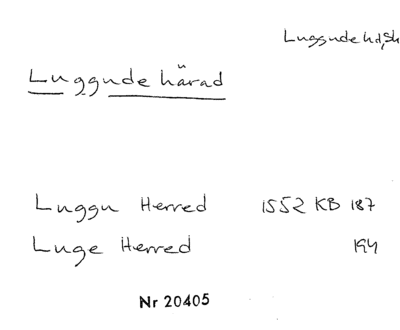 Luggude hd, Sk
Luggude härad
Luggu Herred 1552 KB 187
Luge Herred 194
Nr 20405